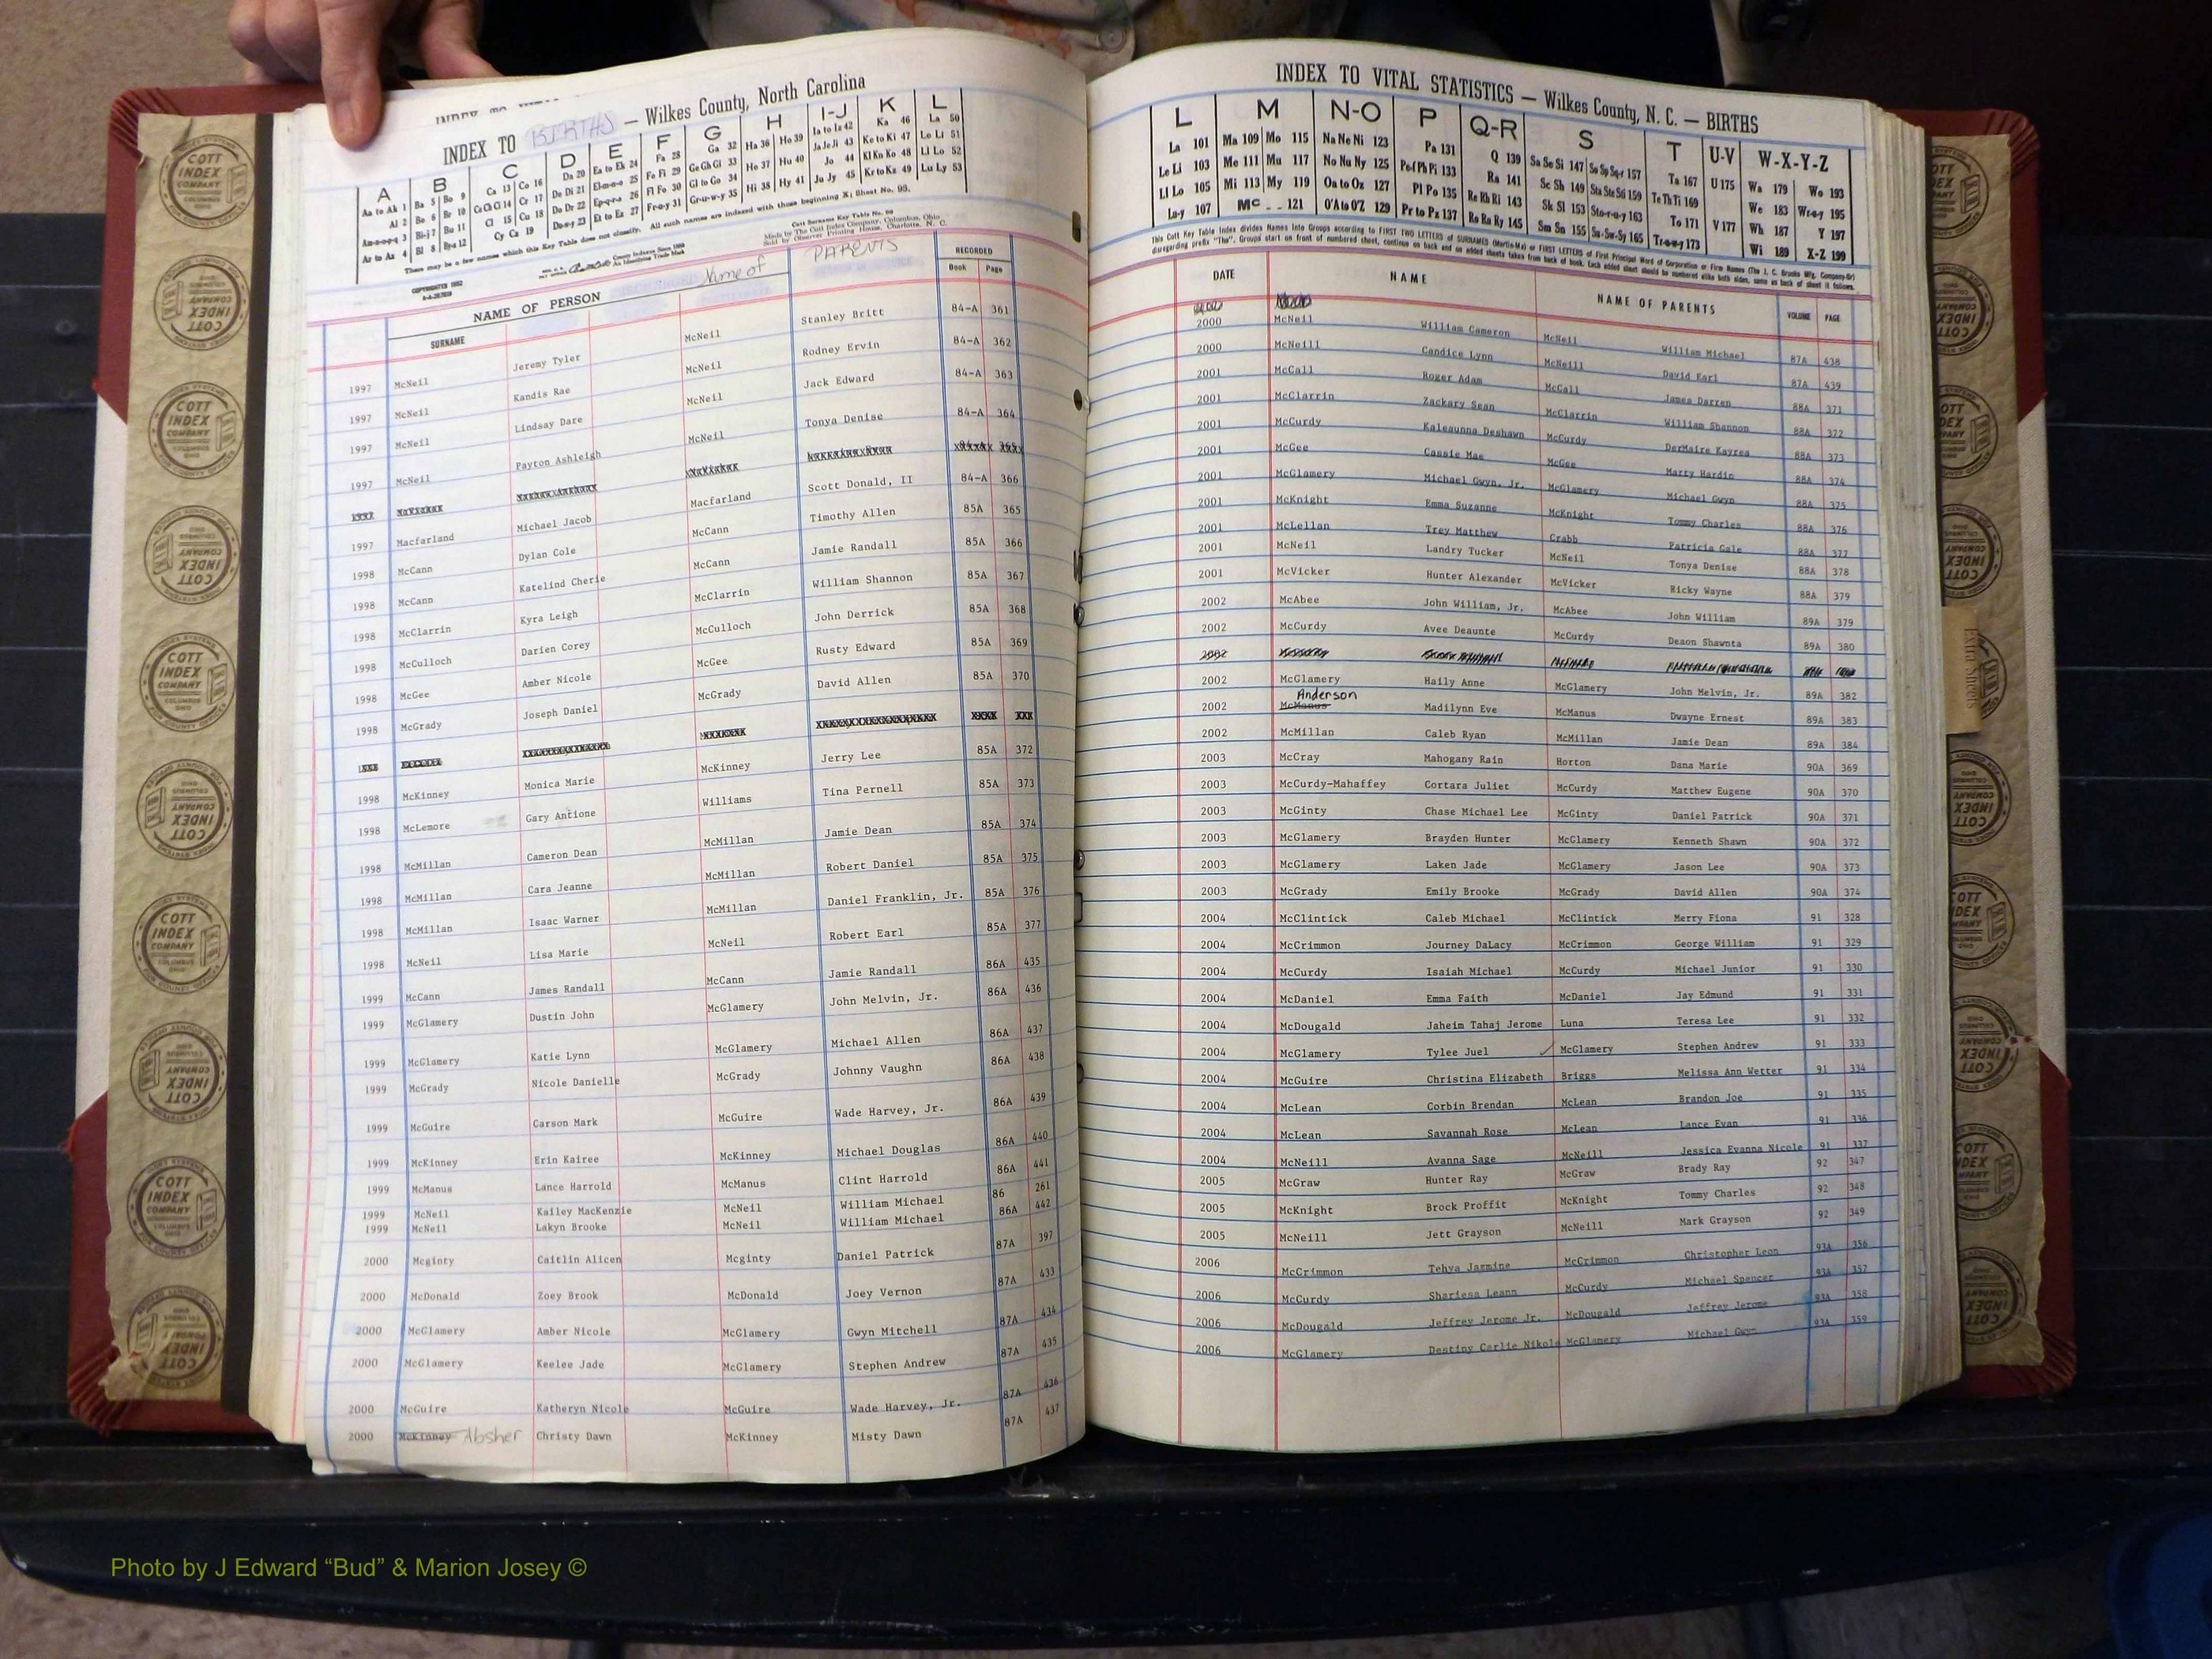 INDEX TO BIRTHS — Wilkes County, North Carolina
A B C D E F G H I-J K L
Aa to Ah 1 Ba 5 Bo 9 Ca 13 Co 16 Da 20 Ea to Ek 24 Fa 28 Ga 32 Ha 36 Ho 39 Ia to Iz 42 Ka 46 La 50
Al 2 Be 6 Br 10 Ce Ch Ci 14 Cr 17 De Di 21 El-m-n-o 25 Fe Fi 29 Ge Gh Gi 33 He 37 Hu 40 Ja Je Ji 43 Ke to Ki 47 Le Li 51
Am-n-o-p-q 3 Bi-j 7 Bu 11 Cl 15 Cu 18 Do Dr 22 Ep-q-r-s 26 Fl Fo 30 Gl to Go 34 Hi 38 Hy 41 Jo 44 Kl Kn Ko 48 Ll Lo 52
Ar to Az 4 Bl 8 By-z 12 Cy Cz 19 Du-s-y 23 Et to Ez 27 Fr-u-y 31 Gr-u-w-y 35 Ju Jy 45 Kr to Kz 49 Lu Ly 53
There may be a few names which this Key Table does not classify. All such names are indexed with those beginning X; Sheet No. 95.
COPYRIGHTED 1952
Made by The Cott Index Company, Columbus, Ohio
Sold by Observer Printing House, Charlotte, N. C.
NAME OF PERSON Name of PARENTS RECORDED
SURNAME Book Page
1997 McNeil Jeremy Tyler McNeil Stanley Britt 84-A 361
1997 McNeil Kandis Rae McNeil Rodney Ervin 84-A 362
1997 McNeil Lindsay Dare McNeil Jack Edward 84-A 363
1997 McNeil Payton Ashleigh McNeil Tonya Denise 84-A 364
1997 Macfarland Michael Jacob Macfarland Scott Donald, II 84-A 366
1998 McCann Dylan Cole McCann Timothy Allen 85A 365
1998 McCann Katelind Cherie McCann Jamie Randall 85A 366
1998 McClarrin Kyra Leigh McClarrin William Shannon 85A 367
1998 McCulloch Darien Corey McCulloch John Derrick 85A 368
1998 McGee Amber Nicole McGee Rusty Edward 85A 369
1998 McGrady Joseph Daniel McGrady David Allen 85A 370
1998 McKinney Monica Marie McKinney Jerry Lee 85A 372
1998 McLemore Gary Antione Williams Tina Pernell 85A 373
1998 McMillan Cameron Dean McMillan Jamie Dean 85A 374
1998 McMillan Cara Jeanne McMillan Robert Daniel 85A 375
1998 McMillan Isaac Warner McMillan Daniel Franklin, Jr. 85A 376
1998 McNeil Lisa Marie McNeil Robert Earl 85A 377
1999 McCann James Randall McCann Jamie Randall 86A 435
1999 McGlamery Dustin John McGlamery John Melvin, Jr. 86A 436
1999 McGlamery Katie Lynn McGlamery Michael Allen 86A 437
1999 McGrady Nicole Danielle McGrady Johnny Vaughn 86A 438
1999 McGuire Carson Mark McGuire Wade Harvey, Jr. 86A 439
1999 McKinney Erin Kairee McKinney Michael Douglas 86A 440
1999 McManus Lance Harrold McManus Clint Harrold 86A 441
1999 McNeil Kailey MacKenzie McNeil William Michael 86 261
1999 McNeil Lakyn Brooke McNeil William Michael 86A 442
2000 Mcginty Caitlin Alicen Mcginty Daniel Patrick 87A 397
2000 McDonald Zoey Brook McDonald Joey Vernon 87A 433
2000 McGlamery Amber Nicole McGlamery Gwyn Mitchell 87A 434
2000 McGlamery Keelee Jade McGlamery Stephen Andrew 87A 435
2000 McGuire Katheryn Nicole McGuire Wade Harvey, Jr. 87A 436
2000 McKinney Absher Christy Dawn McKinney Misty Dawn 87A 437
INDEX TO VITAL STATISTICS — Wilkes County, N. C. — BIRTHS
L M N-O P Q-R S T U-V W-X-Y-Z
La 101 Ma 109 Mo 115 Na Ne Ni 123 Pa 131 Q 139 Sa Se Si 147 So Sp Sq-r 157 Ta 167 U 175 Wa 179 Wo 193
Le Li 103 Me 111 Mu 117 No Nu Ny 125 Pe-f Ph Pi 133 Ra 141 Sc Sh 149 Sta Ste Sti 159 Te Th Ti 169 We 183 Wr-u-y 195
Ll Lo 105 Mi 113 My 119 Oa to Oz 127 Pl Po 135 Re Rh Ri 143 Sk Sl 153 Sto-r-u-y 163 To 171 V 177 Wh 187 Y 197
Lu-y 107 Mc 121 O'A to O'Z 129 Pr to Pz 137 Ro Ru Ry 145 Sm Sn 155 Su-Sw-Sy 165 Tr-u-w-y 173 Wi 189 X-Z 199
DATE NAME NAME OF PARENTS VOLUME PAGE
2000 McNeil William Cameron McNeil William Michael 87A 438
2000 McNeill Candice Lynn McNeill David Earl 87A 439
2001 McCall Roger Adam McCall James Darren 88A 371
2001 McClarrin Zackary Sean McClarrin William Shannon 88A 372
2001 McCurdy Kaleaunna Deshawn McCurdy DerMaire Kayrea 88A 373
2001 McGee Cassie Mae McGee Marty Hardin 88A 374
2001 McGlamery Michael Gwyn, Jr. McGlamery Michael Gwyn 88A 375
2001 McKnight Emma Suzanne McKnight Tommy Charles 88A 376
2001 McLellan Trey Matthew Crabb Patricia Gale 88A 377
2001 McNeil Landry Tucker McNeil Tonya Denise 88A 378
2001 McVicker Hunter Alexander McVicker Ricky Wayne 88A 379
2002 McAbee John William, Jr. McAbee John William 89A 379
2002 McCurdy Avee Deaunte McCurdy Deaon Shawnta 89A 380
2002
2002 McGlamery Haily Anne McGlamery John Melvin, Jr. 89A 382
Anderson
2002 McManus Madilynn Eve McManus Dwayne Ernest 89A 383
2002 McMillan Caleb Ryan McMillan Jamie Dean 89A 384
2003 McCray Mahogany Rain Horton Dana Marie 90A 369
2003 McCurdy-Mahaffey Cortara Juliet McCurdy Matthew Eugene 90A 370
2003 McGinty Chase Michael Lee McGinty Daniel Patrick 90A 371
2003 McGlamery Brayden Hunter McGlamery Kenneth Shawn 90A 372
2003 McGlamery Laken Jade McGlamery Jason Lee 90A 373
2003 McGrady Emily Brooke McGrady David Allen 90A 374
2004 McClintick Caleb Michael McClintick Merry Fiona 91 328
2004 McCrimmon Journey DaLacy McCrimmon George William 91 329
2004 McCurdy Isaiah Michael McCurdy Michael Junior 91 330
2004 McDaniel Emma Faith McDaniel Jay Edmund 91 331
2004 McDougald Jaheim Tahaj Jerome Luna Teresa Lee 91 332
2004 McGlamery Tylee Juel McGlamery Stephen Andrew 91 333
2004 McGuire Christina Elizabeth Briggs Melissa Ann Wetter 91 334
2004 McLean Corbin Brendan McLean Brandon Joe 91 335
2004 McLean Savannah Rose McLean Lance Evan 91 336
2004 McNeill Avanna Sage McNeill Jessica Evanna Nicole 91 337
2005 McGraw Hunter Ray McGraw Brady Ray 92 347
2005 McKnight Brock Proffit McKnight Tommy Charles 92 348
2005 McNeill Jett Grayson McNeill Mark Grayson 92 349
2006 McCrimmon Tehya Jazmine McCrimmon Christopher Leon 93A 356
2006 McCurdy Shariesa Leann McCurdy Michael Spencer 93A 357
2006 McDougald Jeffrey Jerome Jr. McDougald Jeffrey Jerome 93A 358
2006 McGlamery Destiny Carlie Nikole McGlamery Michael Gwyn 93A 359
Extra Sheets
COTT INDEX COMPANY COLUMBUS OHIO
Photo by J Edward “Bud” & Marion Josey ©